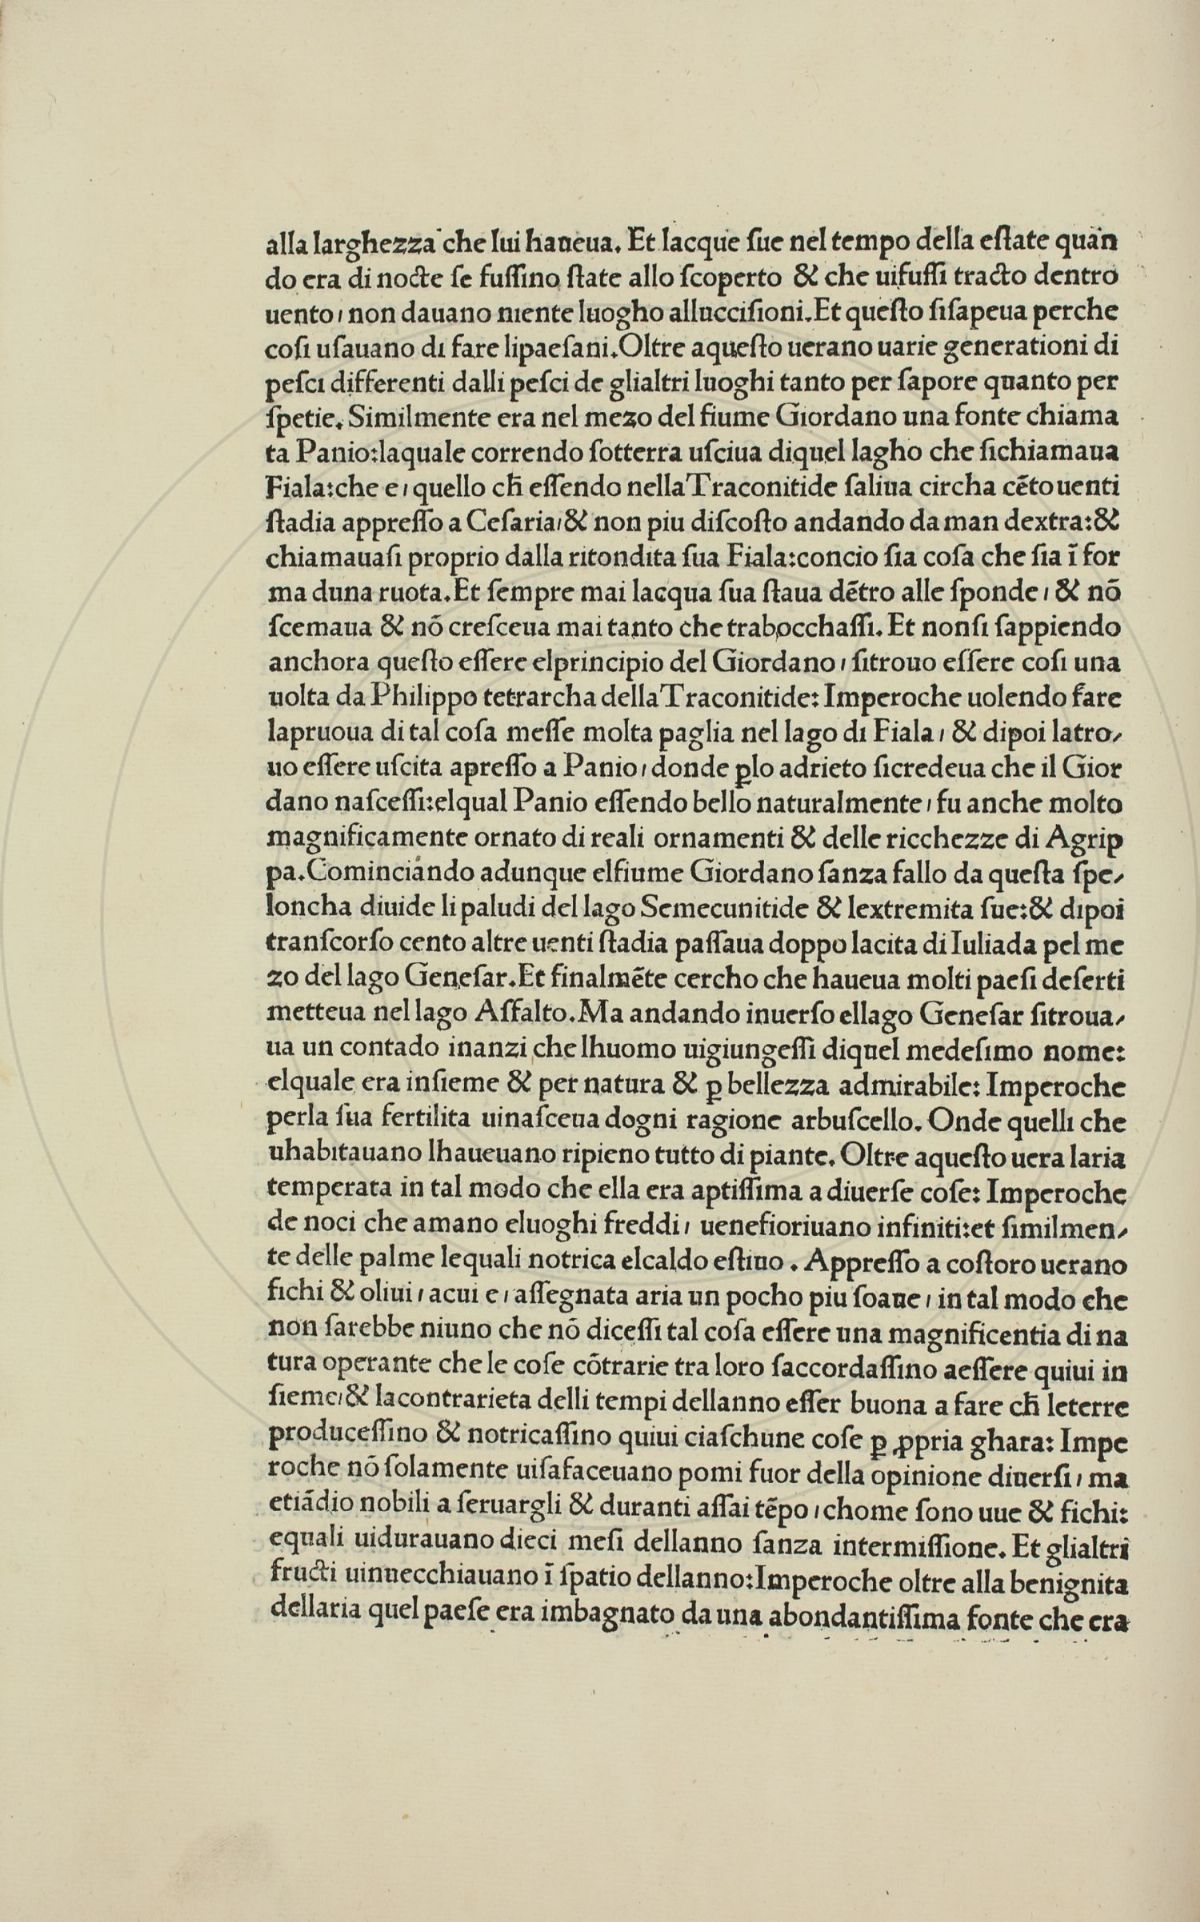 alla larghezza che lui haueua. Et lacque sue nel tempo della estate quan
do era di nocte se fussino state allo scoperto & che uifussi tracto dentro
uento, non dauano niente luogho alluccisioni. Et questo sisapeua perche
cosi usauano di fare lipaesani. Oltre aquesto uerano uarie generationi di
pesci differenti dalli pesci de glialtri luoghi tanto per sapore quanto per
spetie. Similmente era nel mezo del fiume Giordano una fonte chiama
ta Panio:laquale correndo sotterra usciua diquel lagho che sichiamaua
Fiala:che e, quello cħ essendo nella Traconitide saliua circha cēto uenti
stadia appresso a Cesaria,& non piu discosto andando da man dextra:&
chiamauasi proprio dalla ritondita sua Fiala:concio sia cosa che sia ī for
ma duna ruota. Et sempre mai lacqua sua staua dētro alle sponde, & nō
scemaua & nō cresceua mai tanto che trabocchassi. Et nonsi sappiendo
anchora questo essere elprincipio del Giordano, sitrouo essere cosi una
uolta da Philippo tetrarcha della Traconitide: Imperoche uolendo fare
lapruoua di tal cosa messe molta paglia nel lago di Fiala, & dipoi latro⸗
uo essere uscita apresso a Panio, donde ꝑlo adrieto sicredeua che il Gior
dano nascessi:elqual Panio essendo bello naturalmente, fu anche molto
magnificamente ornato di reali ornamenti & delle ricchezze di Agrip
pa. Cominciando adunque elfiume Giordano sanza fallo da questa spe⸗
loncha diuide li paludi del lago Semecunitide & lextremita sue:& dipoi
transcorso cento altre uenti stadia passaua doppo lacita di Iuliada pel me
zo del lago Genesar. Et finalmēte cercho che haueua molti paesi deserti
metteua nel lago Asfalto. Ma andando inuerso ellago Genesar sitroua⸗
ua un contado inanzi che lhuomo uigiungessi diquel medesimo nome:
elquale era insieme & per natura & ꝑ bellezza admirabile: Imperoche
perla sua fertilita uinasceua dogni ragione arbuscello. Onde quelli che
uhabitauano lhaueuano ripieno tutto di piante. Oltre aquesto uera laria
temperata in tal modo che ella era aptissima a diuerse cose: Imperoche
de noci che amano eluoghi freddi, uenefioriuano infiniti:et similmen⸗
te delle palme lequali notrica elcaldo estiuo . Appresso a costoro uerano
fichi & oliui, acui e, assegnata aria un pocho piu soaue, in tal modo che
non sarebbe niuno che nō dicessi tal cosa essere una magnificentia di na
tura operante che le cose cōtrarie tra loro saccordassino aessere quiui in
sieme,& lacontrarieta delli tempi dellanno esser buona a fare cħ leterre
producessino & notricassino quiui ciaschune cose ꝑ ꝓpria ghara: Impe
roche nō solamente uisafaceuano pomi fuor della opinione diuersi, ma
etiādio nobili a seruargli & duranti assai tēpo, chome sono uue & fichi:
equali uidurauano dieci mesi dellanno sanza intermissione. Et glialtri
fructi uinuecchiauano ī spatio dellanno: Imperoche oltre alla benignita
dellaria quel paese era imbagnato da una abondantissima fonte che era